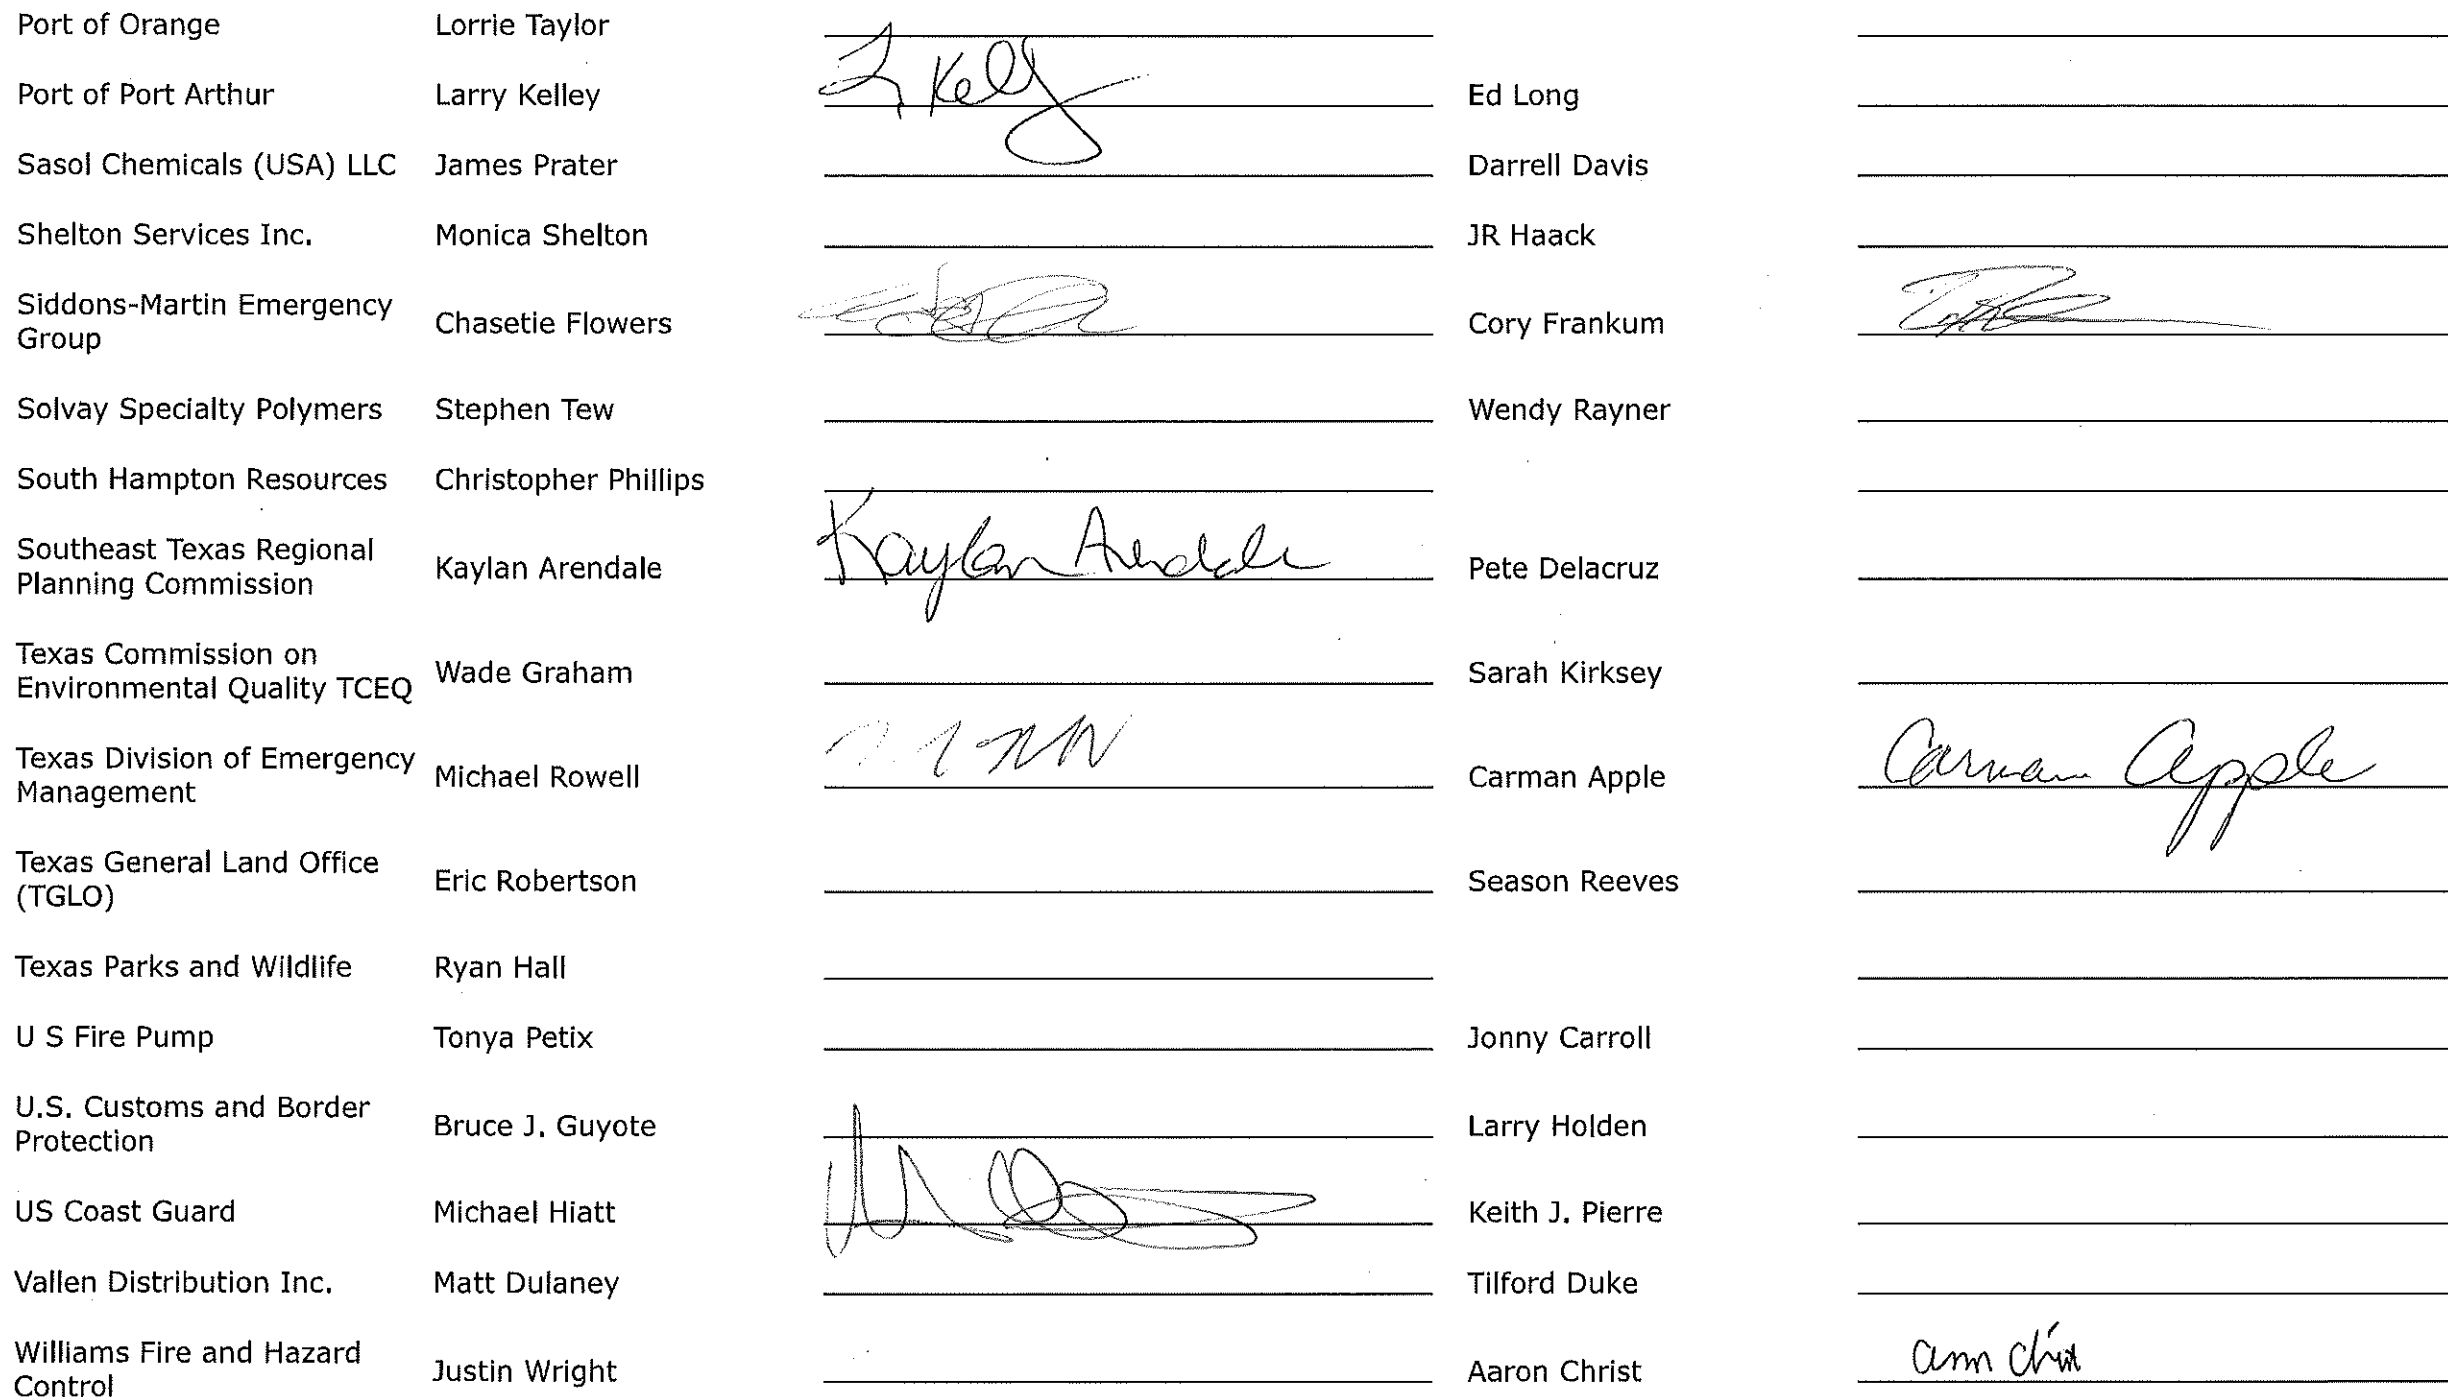 Port of Orange Lorrie Taylor
Port of Port Arthur Larry Kelley L Kelly Ed Long
Sasol Chemicals (USA) LLC James Prater Darrell Davis
Shelton Services Inc. Monica Shelton JR Haack
Siddons-Martin Emergency
Group Chasetie Flowers Cory Frankum
Solvay Specialty Polymers Stephen Tew Wendy Rayner
South Hampton Resources Christopher Phillips
Southeast Texas Regional
Planning Commission Kaylan Arendale Kaylan Arendale Pete Delacruz
Texas Commission on
Environmental Quality TCEQ Wade Graham Sarah Kirksey
Texas Division of Emergency
Management Michael Rowell Carman Apple Carman Apple
Texas General Land Office
(TGLO) Eric Robertson Season Reeves
Texas Parks and Wildlife Ryan Hall
U S Fire Pump Tonya Petix Jonny Carroll
U.S. Customs and Border
Protection Bruce J. Guyote Larry Holden
US Coast Guard Michael Hiatt Keith J. Pierre
Vallen Distribution Inc. Matt Dulaney Tilford Duke
Williams Fire and Hazard
Control Justin Wright Aaron Christ